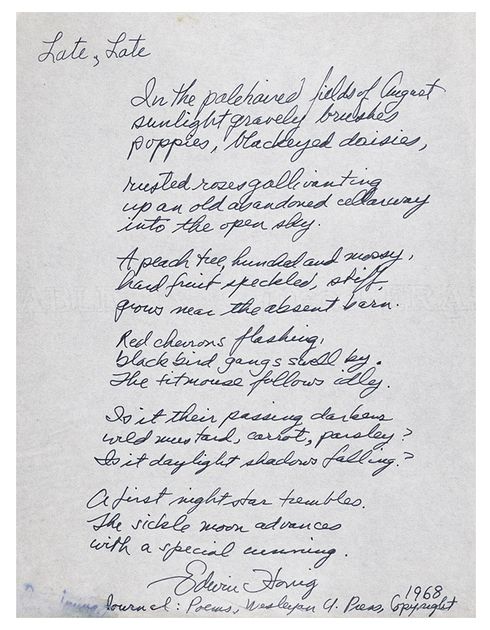 Late, Late
In the palehaired fields of August
sunlight gravely brushes
poppies, blackeyed daisies,
rusted roses gallivanting
up an old abandoned cellarway
into the open sky.
A peach tree, hunched and mossy,
hard fruit speckled, stiff,
grows near the absent barn.
Red chevrons flashing,
blackbird gangs swell by.
The titmouse follows idly.
Is it their passing darkens
wild mustard, carrot, parsley?
Is it daylight shadows falling?
A first night star trembles.
The sickle moon advances
with a special cunning.
Edwin Honig
1968
Journal: Poems, Wesleyan U. Press, Copyright